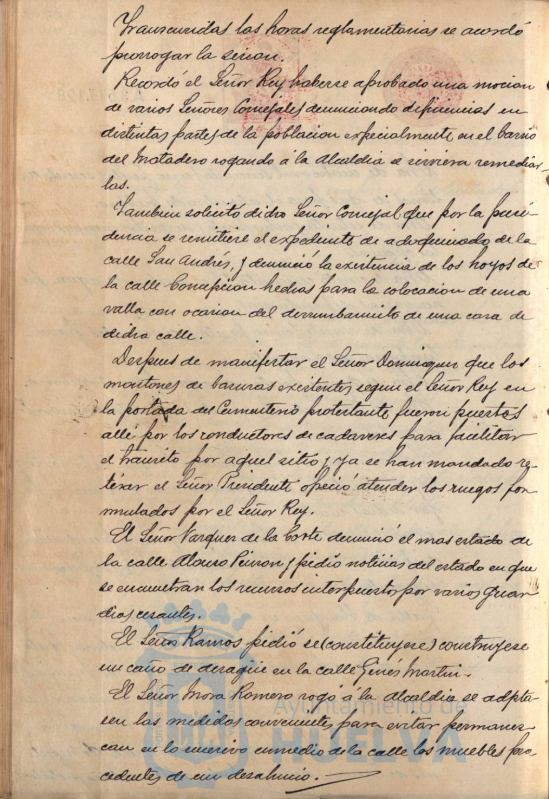 Transcurridas las horas reglamentarias se acordó
prorrogar la sesion.
Recordó el Señor Rey haberse aprobado una mocion
de varios Señores Concejales denunciando deficiencias en
distintas partes de la poblacion especialmente en el barrio
del Matadero rogando á la Alcaldia se sirviera remediar
las.
Tambien solicitó dicho Señor Concejal que por la presi
dencia se remitiese el expediente de adoquinado de la
calle San Andrés, y denunció la existencia de los hoyos de
la calle Concepcion hechos para la colocacion de una
valla con ocasion del derrumbamiento de una casa de
dicha calle.
Despues de manifestar el Señor Dominguez que los
montones de basuras existentes segun el Señor Rey en
la portada del Cementerio protestante fueron puestos
alli por los conductores de cadaveres para facilitar
el transito por aquel sitio y ya se han mandado re
tirar el Señor Presidente ofreció atender los ruegos for
mulados por el Señor Rey.
El Señor Vazquez de la Corte denunció el mal estado de
la calle Alonso Pinzon y pidió noticias del estado en que
se encuentran los recursos interpuestos por varios guar
dias cesantes.
El Señor Ramos pidió se (constituyese) construyese
un caño de desagüe en la calle Ginés Martin.
El Señor Mora Romero rogó á la Alcaldia se adopta
sen las medidas convenientes para evitar permanez
can en lo sucesivo enmedio de la calle los muebles pro
cedentes de un desahucio.
Ayuntamiento de
HUELVA